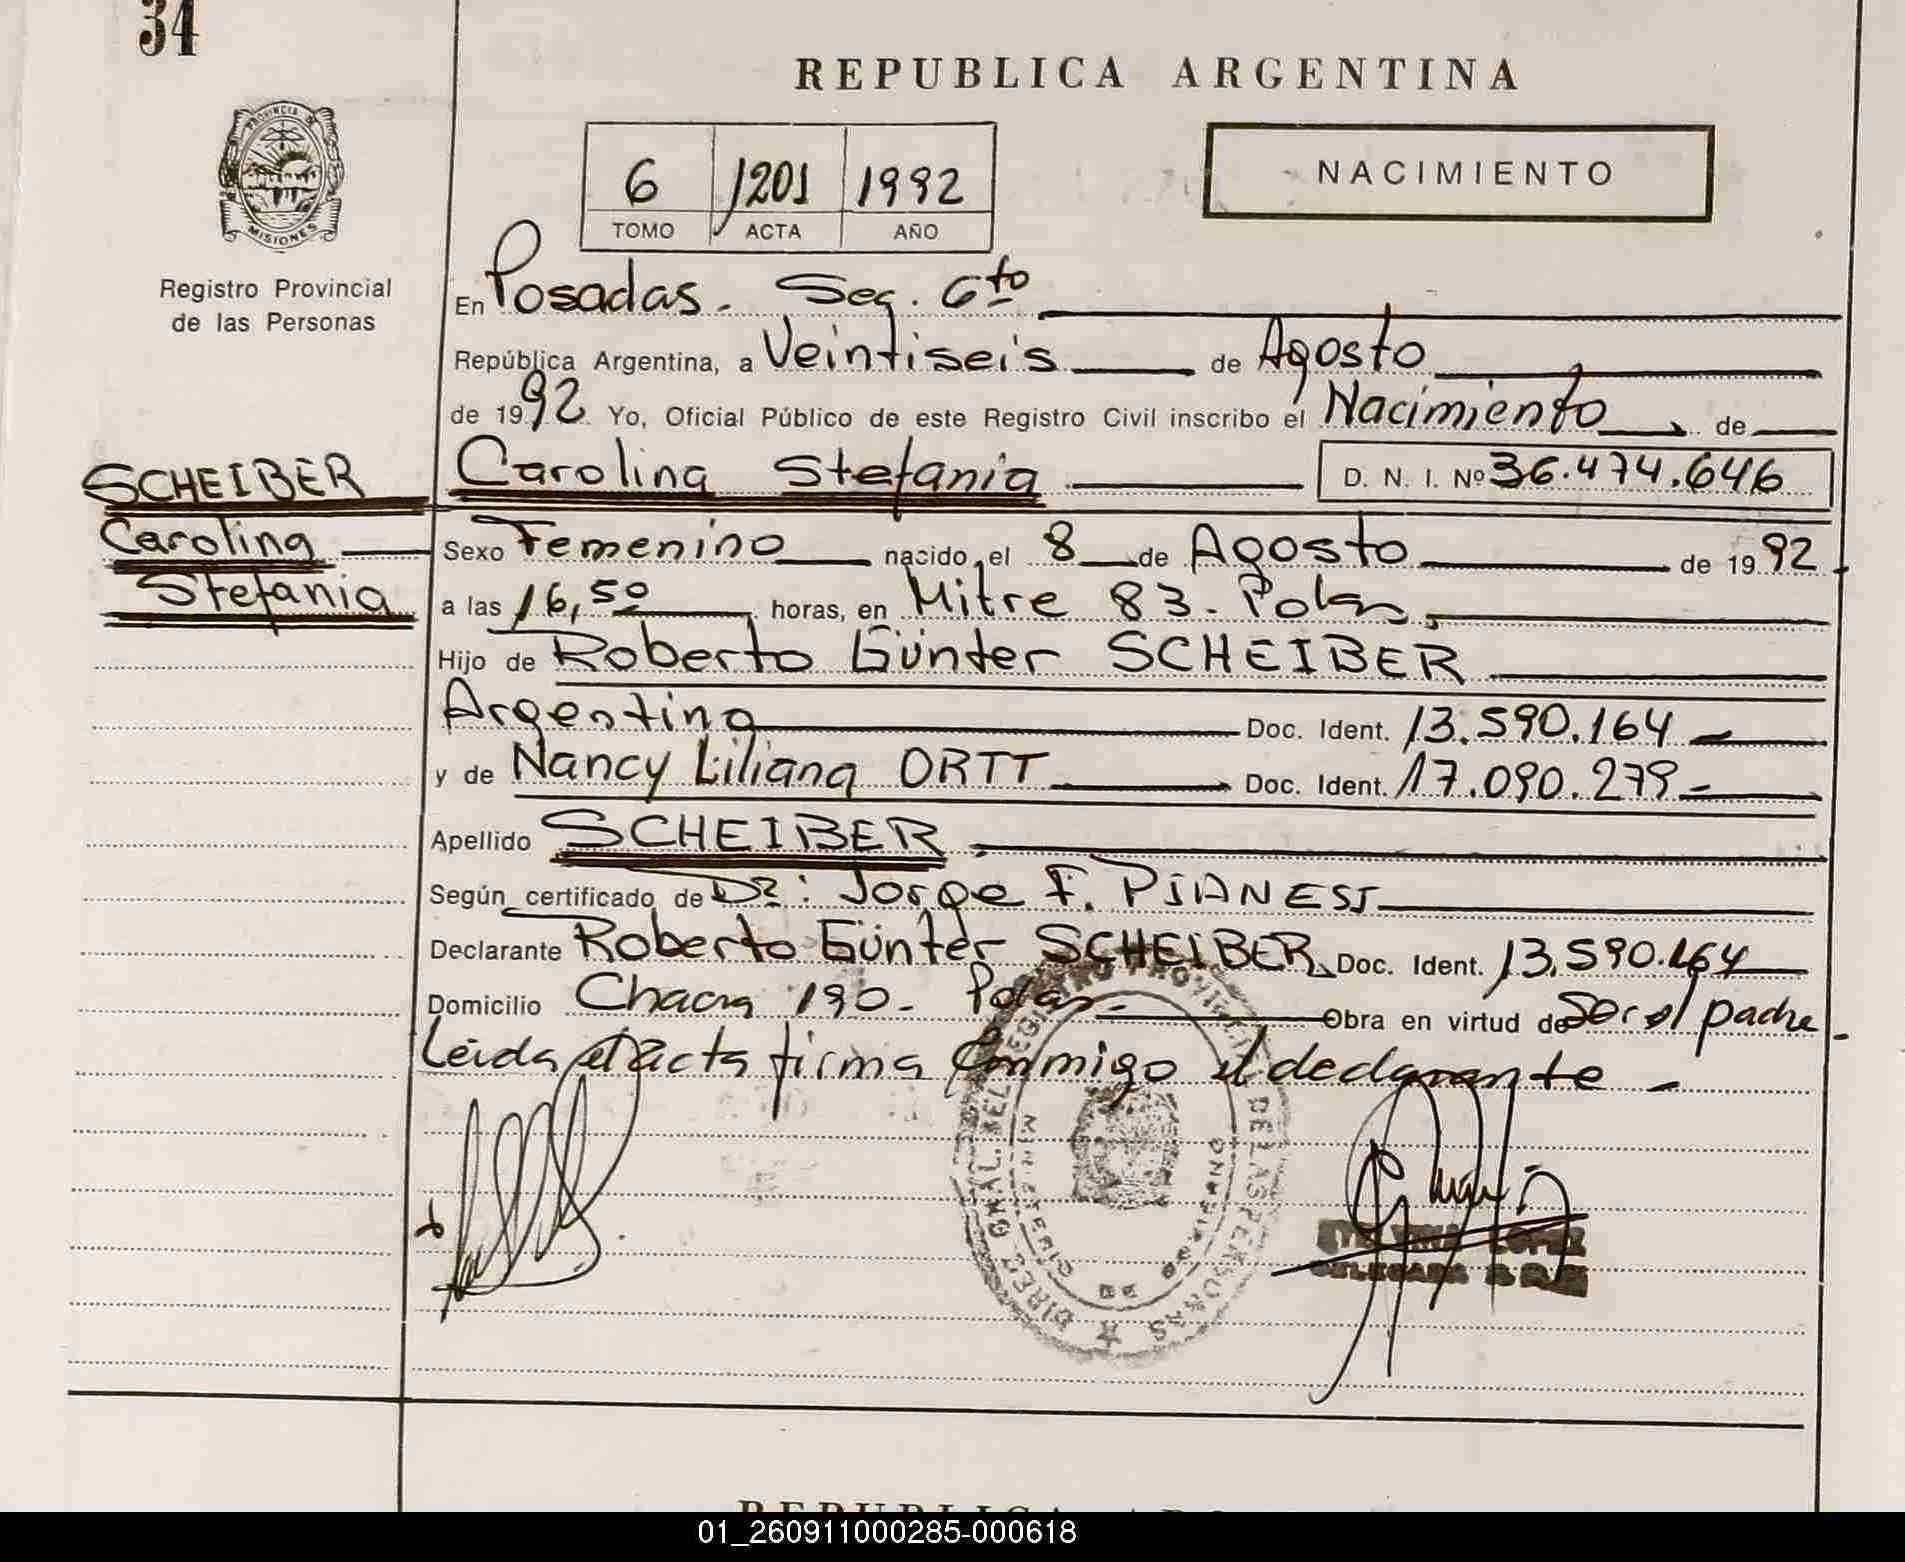 34
REPUBLICA ARGENTINA
PROVINCIA DE
MISIONES
Registro Provincial
de las Personas
6 1201 1992
TOMO ACTA AÑO
NACIMIENTO
En Posadas. Sec. 6to
República Argentina, a Veintiseis de Agosto
de 1992 Yo, Oficial Público de este Registro Civil inscribo el Nacimiento de
SCHEIBER
Carolina
Stefania
Carolina Stefania D. N. I. Nº 36.474.646
Sexo Femenino nacido el 8 de Agosto de 1992
a las 16,50 horas, en Mitre 83. Pdas.
Hijo de Roberto Günter SCHEIBER
Argentino Doc. Ident. 13.590.164
y de Nancy Liliana ORTT Doc. Ident. 17.090.279
Apellido SCHEIBER
Según certificado de Dr: Jorge F. PIANESI
Declarante Roberto Günter SCHEIBER Doc. Ident. 13.590.164
Domicilio Chacra 190. Pdas. Obra en virtud de Ser el padre.
Leida el acta firma Conmigo el declarante
DIREC. GRAL. DEL REGISTRO PROVINCIAL DE LAS PERSONAS
MINISTERIO DE GOBIERNO
LOPEZ
DELEGADA
01_260911000285-000618